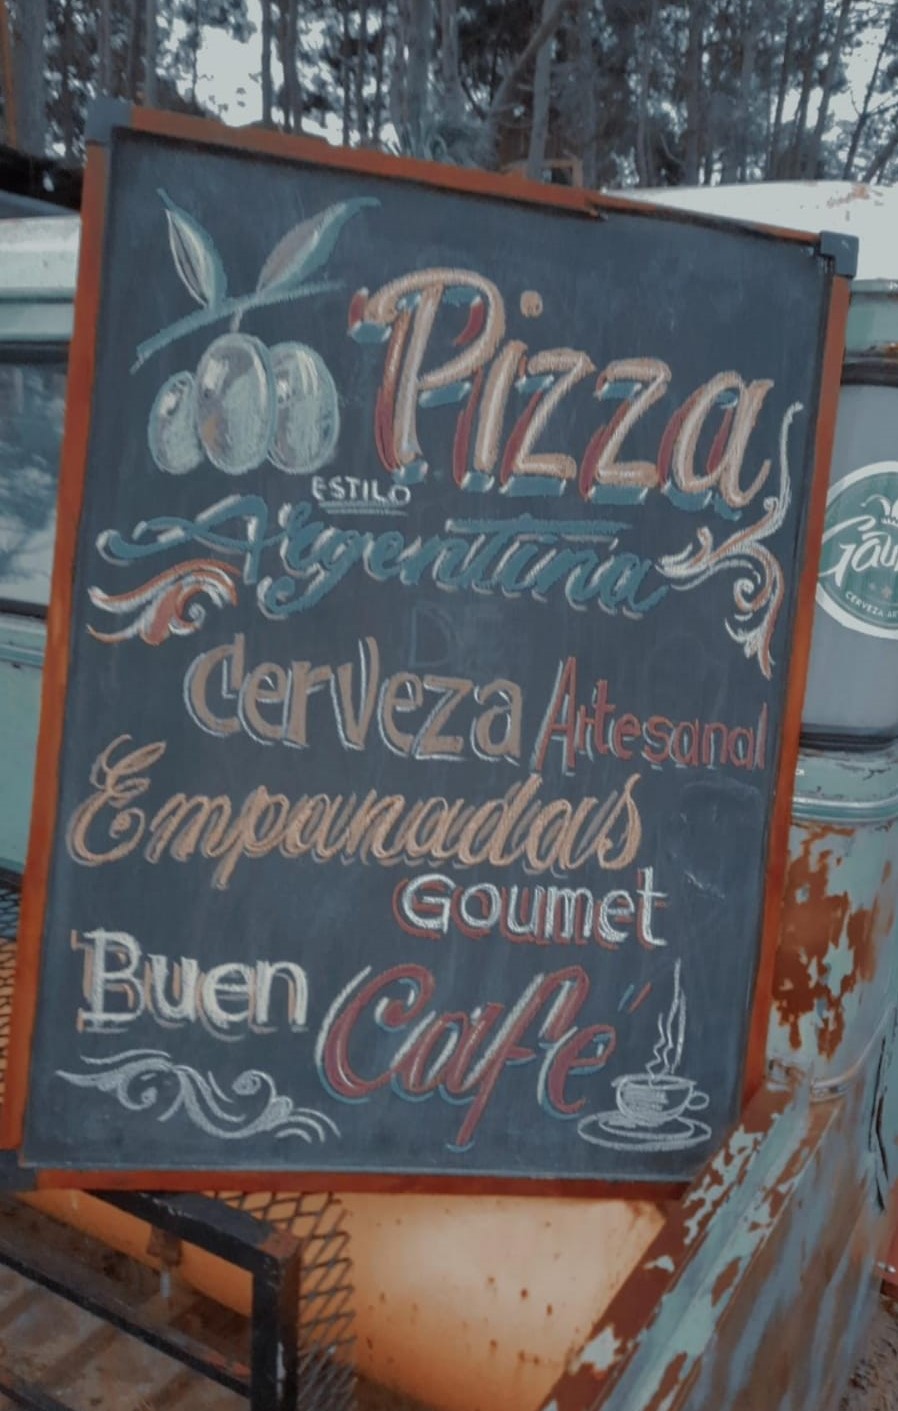 Pizza
ESTILO
Argentina
Cerveza Artesanal
Empanadas
Goumet
Buen Café
CERVEZA